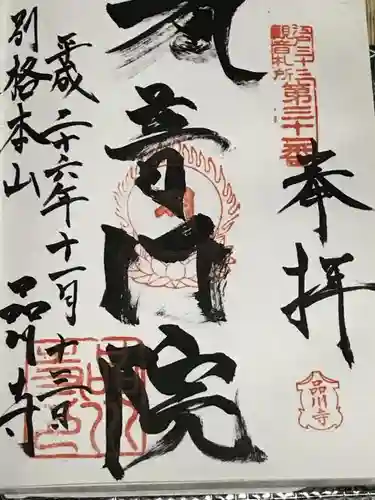 奉拝
品川寺
江戸三十三
観音札所
第三十一番
普門院
平成二十六年十一月十三日
別格本山 品川寺